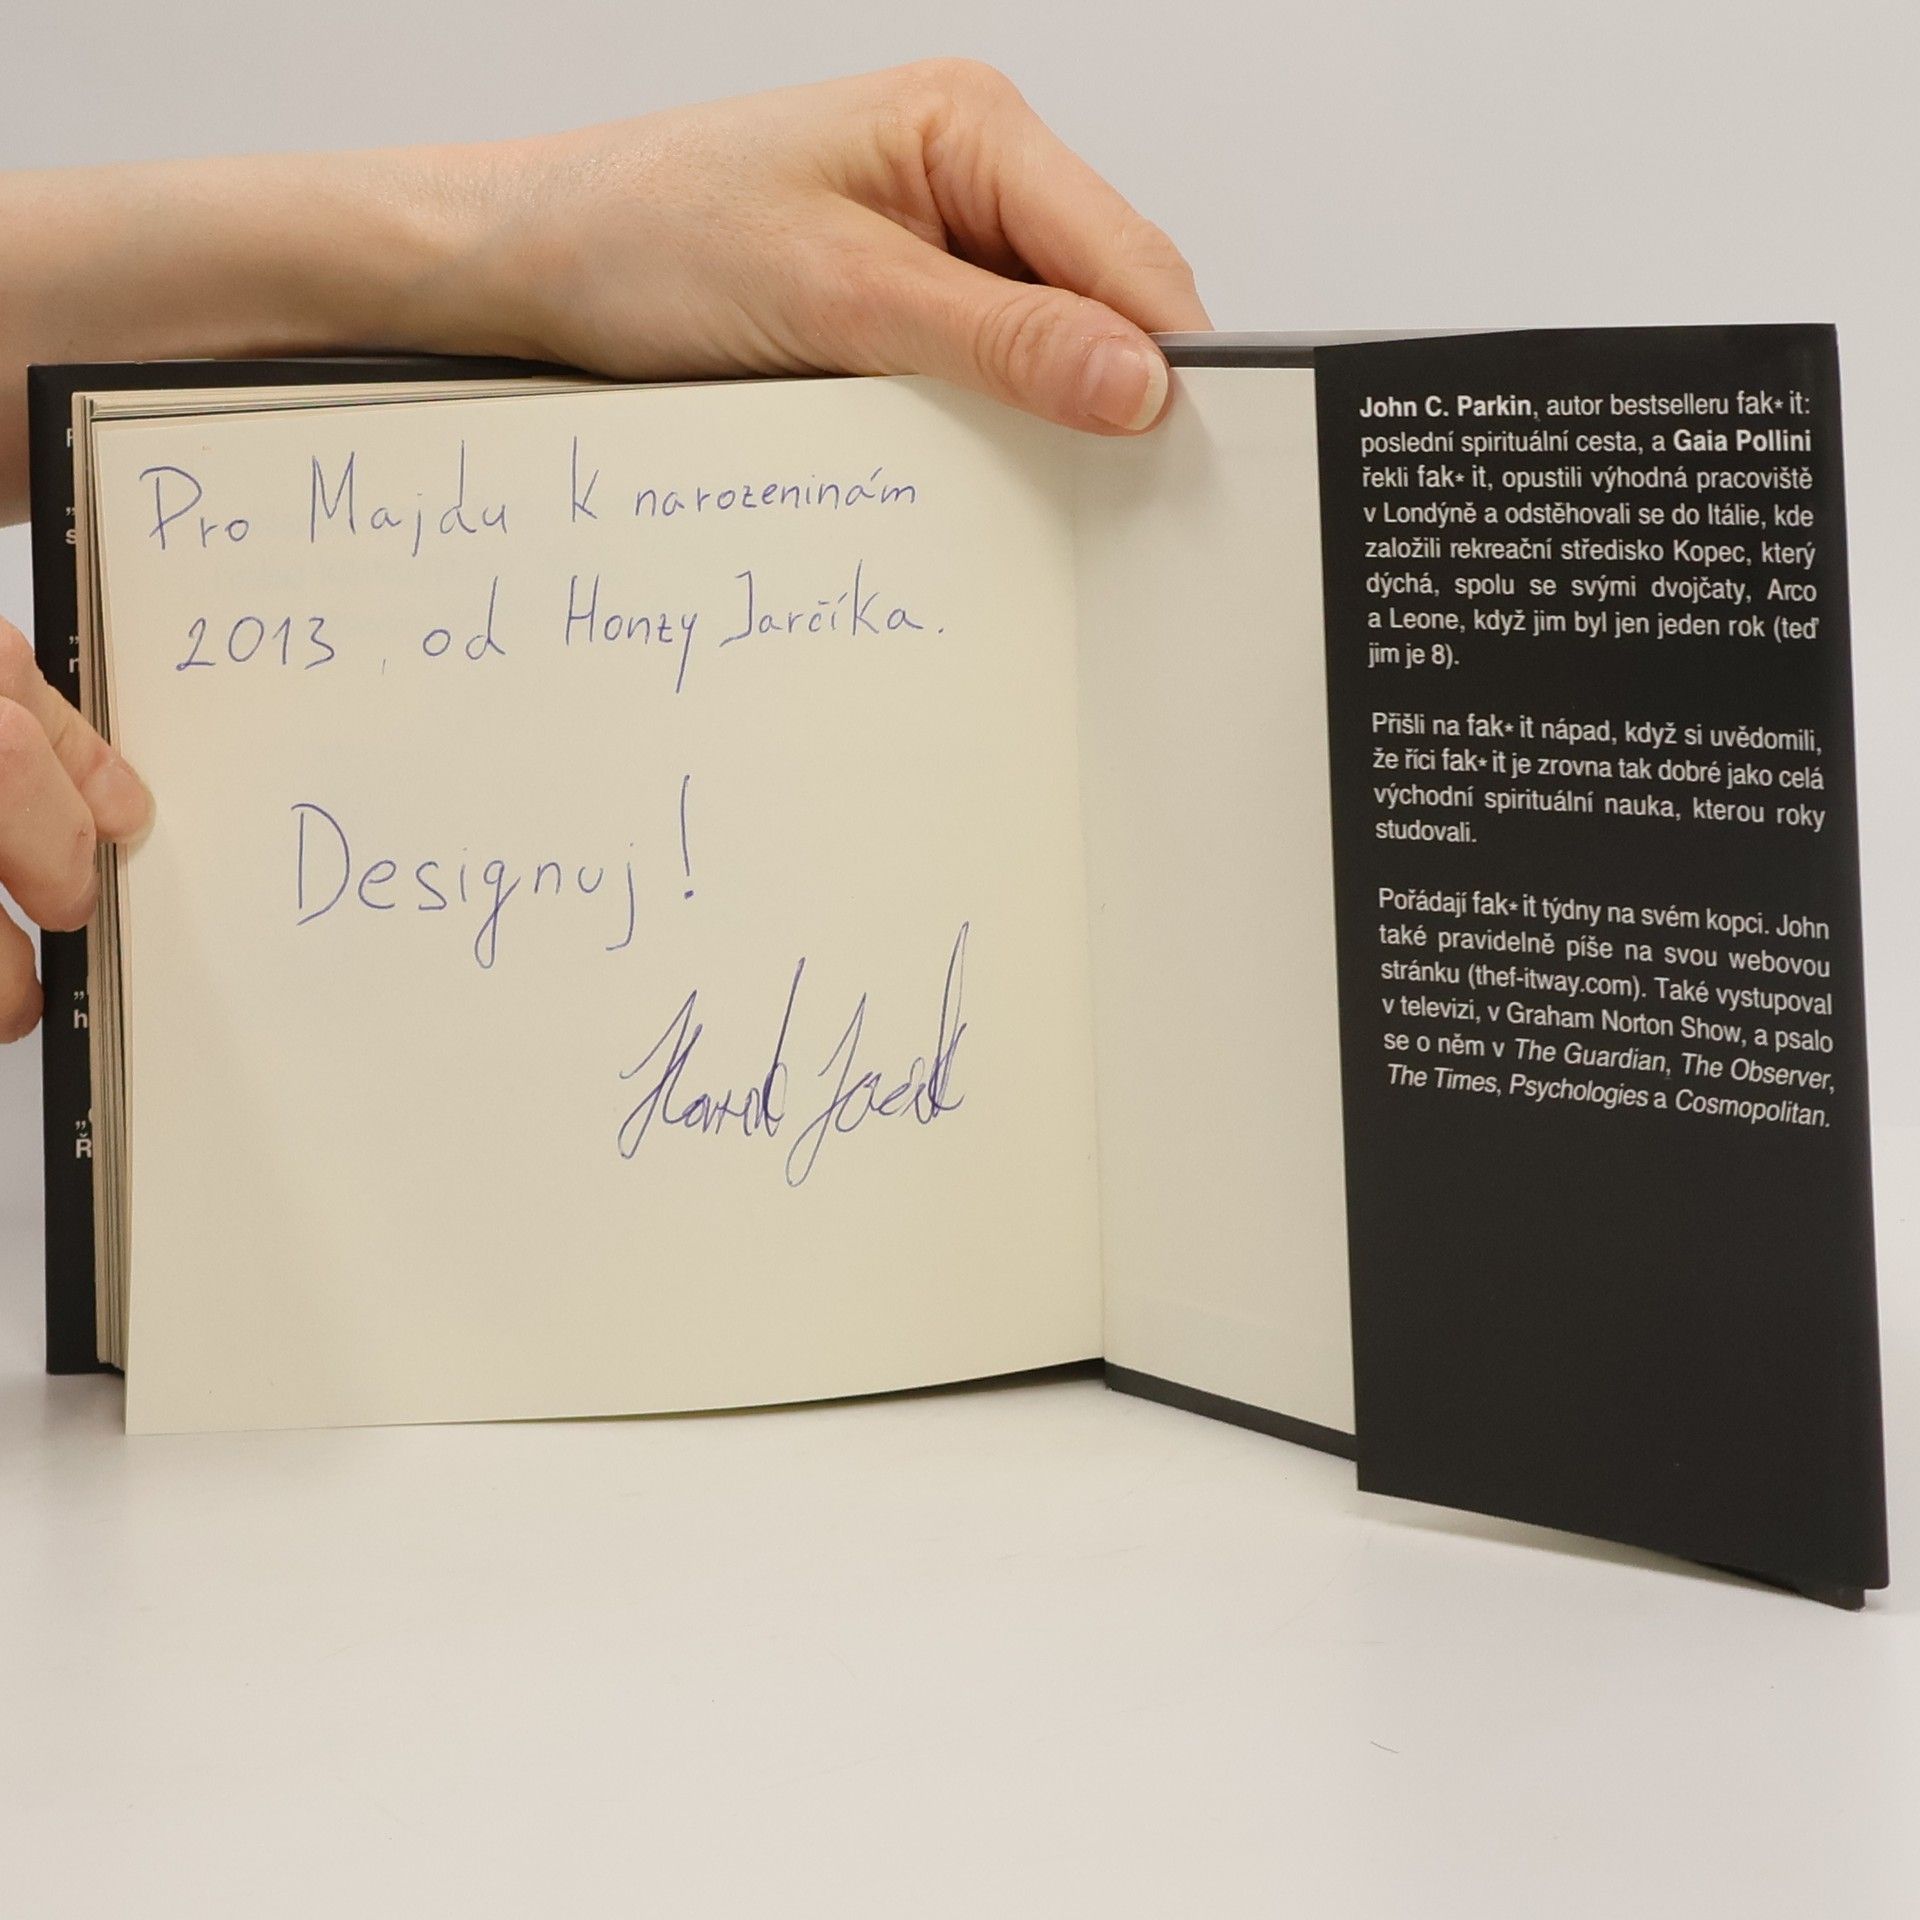 Pro Majdu k narozeninám
2013, od Honzy Jarčíka.
Designuj!
John C. Parkin, autor bestselleru fak* it:
poslední spirituální cesta, a Gaia Pollini
řekli fak* it, opustili výhodná pracoviště
v Londýně a odstěhovali se do Itálie, kde
založili rekreační středisko Kopec, který
dýchá, spolu se svými dvojčaty, Arco
a Leone, když jim byl jen jeden rok (teď
jim je 8).
Přišli na fak* it nápad, když si uvědomili,
že říci fak* it je zrovna tak dobré jako celá
východní spirituální nauka, kterou roky
studovali.
Pořádají fak* it týdny na svém kopci. John
také pravidelně píše na svou webovou
stránku (thef-itway.com). Také vystupoval
v televizi, v Graham Norton Show, a psalo
se o něm v The Guardian, The Observer,
The Times, Psychologies a Cosmopolitan.